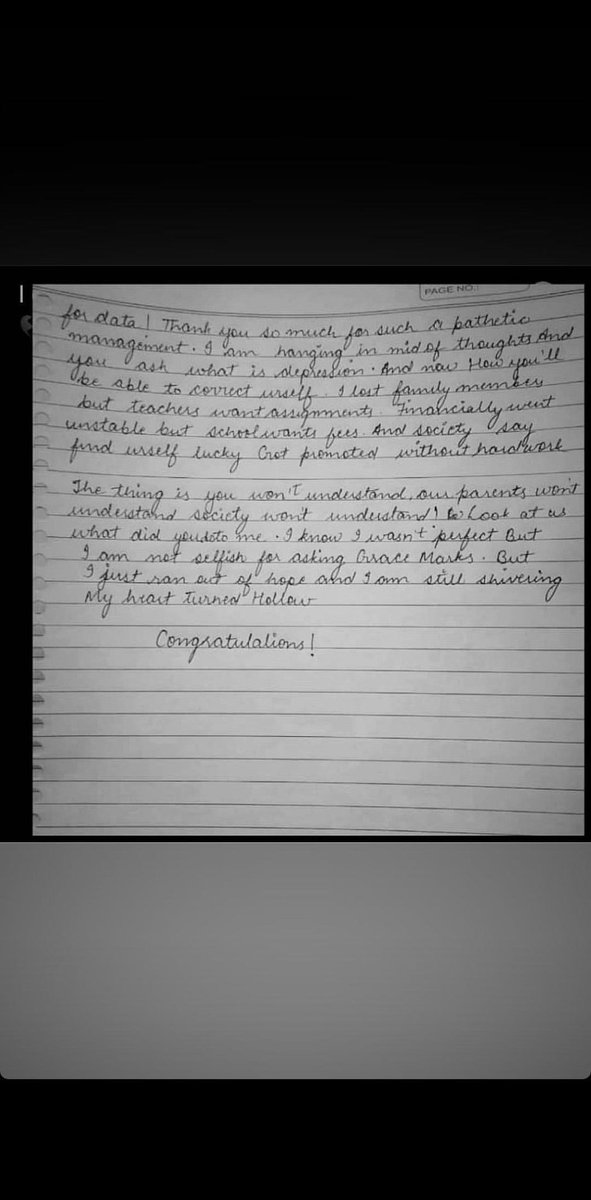 PAGE NO.:
for data! Thank you so much for such a pathetic
management. I am hanging in mid of thoughts And
you ask what is depression. And now How you'll
be able to correct urself. I lost family members
but teachers want assignments. Financially went
unstable but school wants fees. And society say
find urself lucky Got promoted without hardwork
The thing is you won't understand, our parents won't
understand society won't understand! Look at us
what did you do to me. I know I wasn't perfect But
I am not selfish for asking Grace Marks. But
I just ran out of hope and I am still shivering
My heart Turned Hollow
Congratulations!